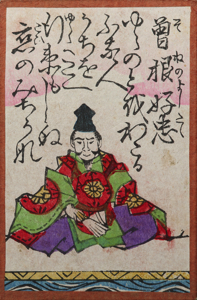 曾根好忠
そねのよしたゞ
ゆらのとをわたる
ふな人
かちを
たえ
行末もしらぬ
恋のみちかな